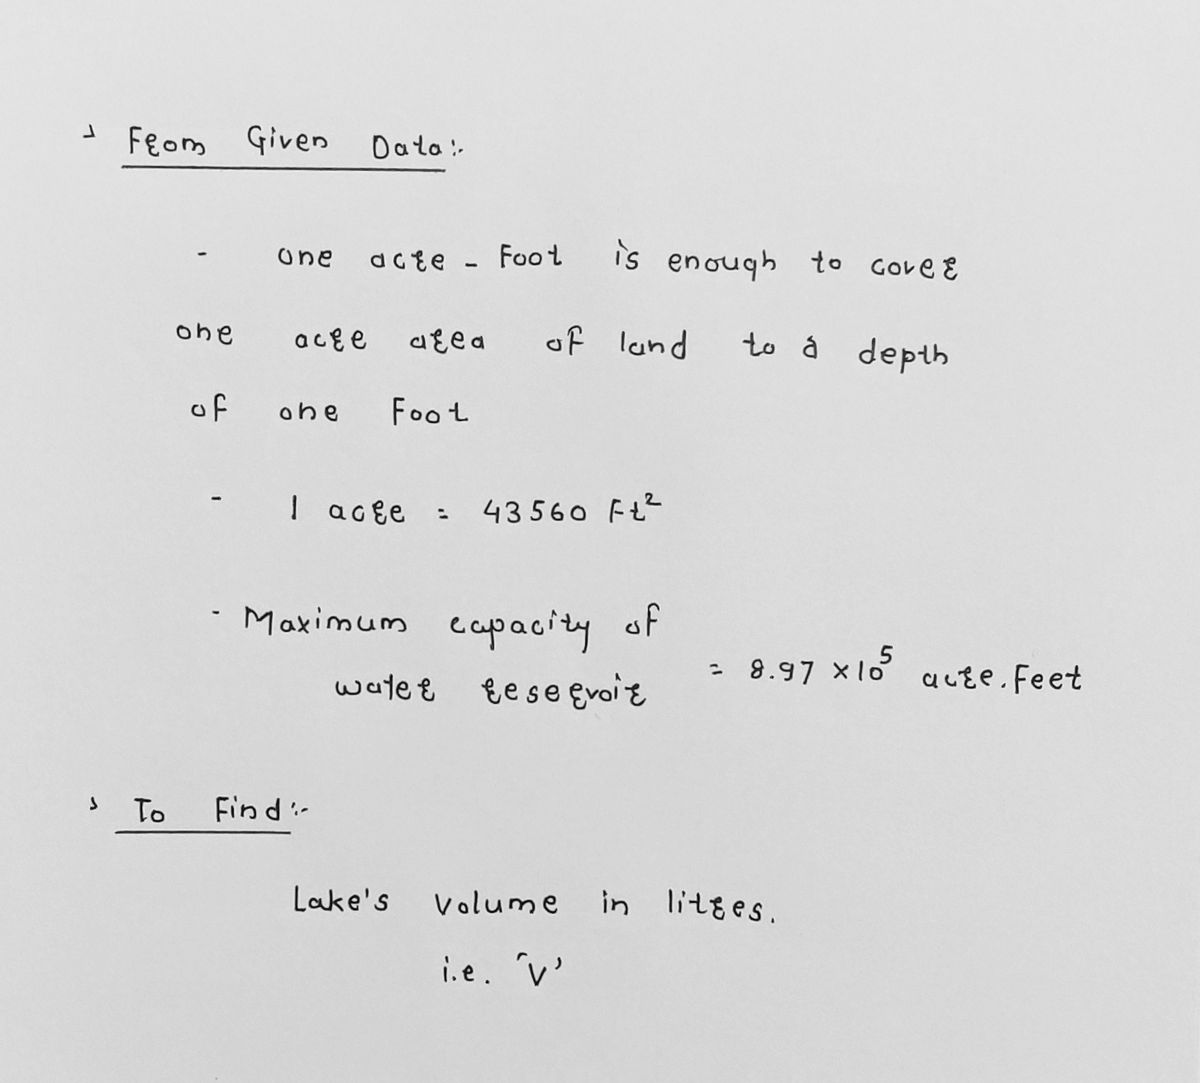 › From Given Data :-
- one acre - Foot is enough to cover
one acre area of land to a depth
of one Foot
- 1 acre = 43560 Ft²
- Maximum capacity of
water reservoir = 8.97 × 10⁵ acre.feet
› To Find :-
Lake's volume in litres.
i.e. 'V'